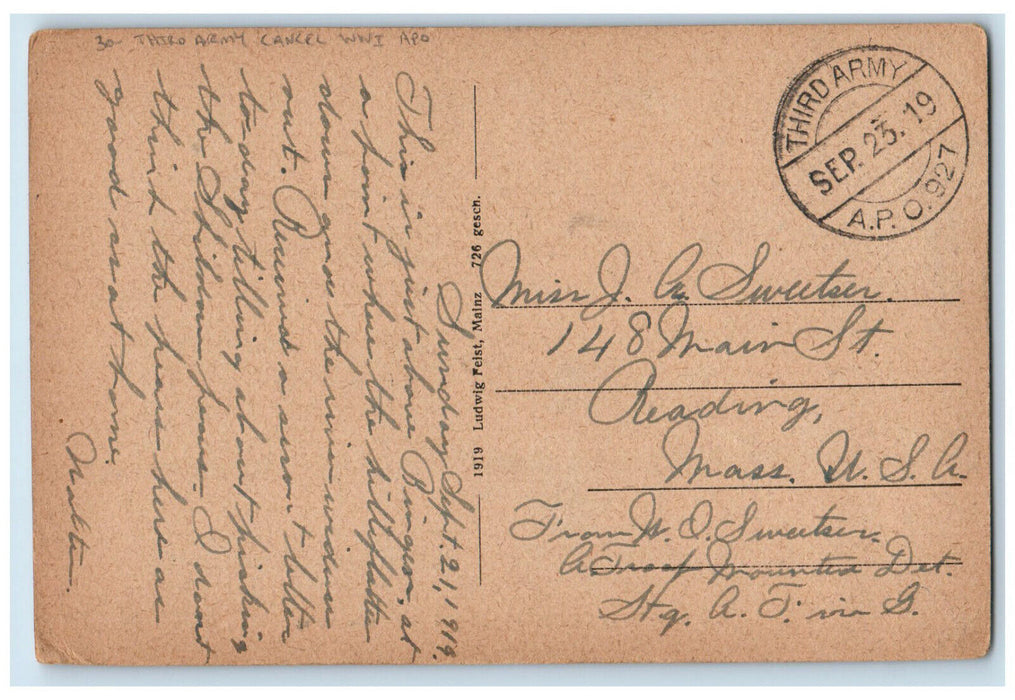 30- THIRD ARMY CANCEL WWI APO
THIRD ARMY
SEP. 23. 19
A.P.O. 927
Sunday Sept. 21, 1919.
This is just above Bingen, at
a point where the hills flatten
down and the river widens
out. Received a swon't letter
to-day telling about picking
the Shihom pears. I don't
think the pears here are
good as at home.
Walter.
1919 Ludwig Feist, Mainz 726 gesch.
Miss J. G. Sweetser.
148 Main St.
Reading,
Mass. U. S. A
From W. O. Sweetser.
A Troop Mounted Det.
Hq. A. F. in G.